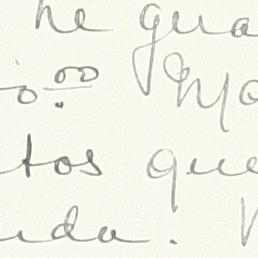 he gua
o.00 Ma
tos que
uda.